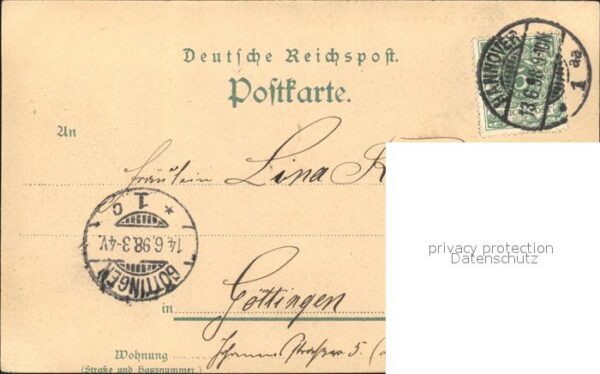 Deutsche Reichspost.
Postkarte.
HANNOVER
13.6.98.9-10N.
* 1 aa
An
Fräulein Lina
* 1 C
14.6.98.3-4V.
GÖTTINGEN
privacy protection
Datenschutz
in Göttingen
Wohnung 5.
(Straße und Hausnummer.)